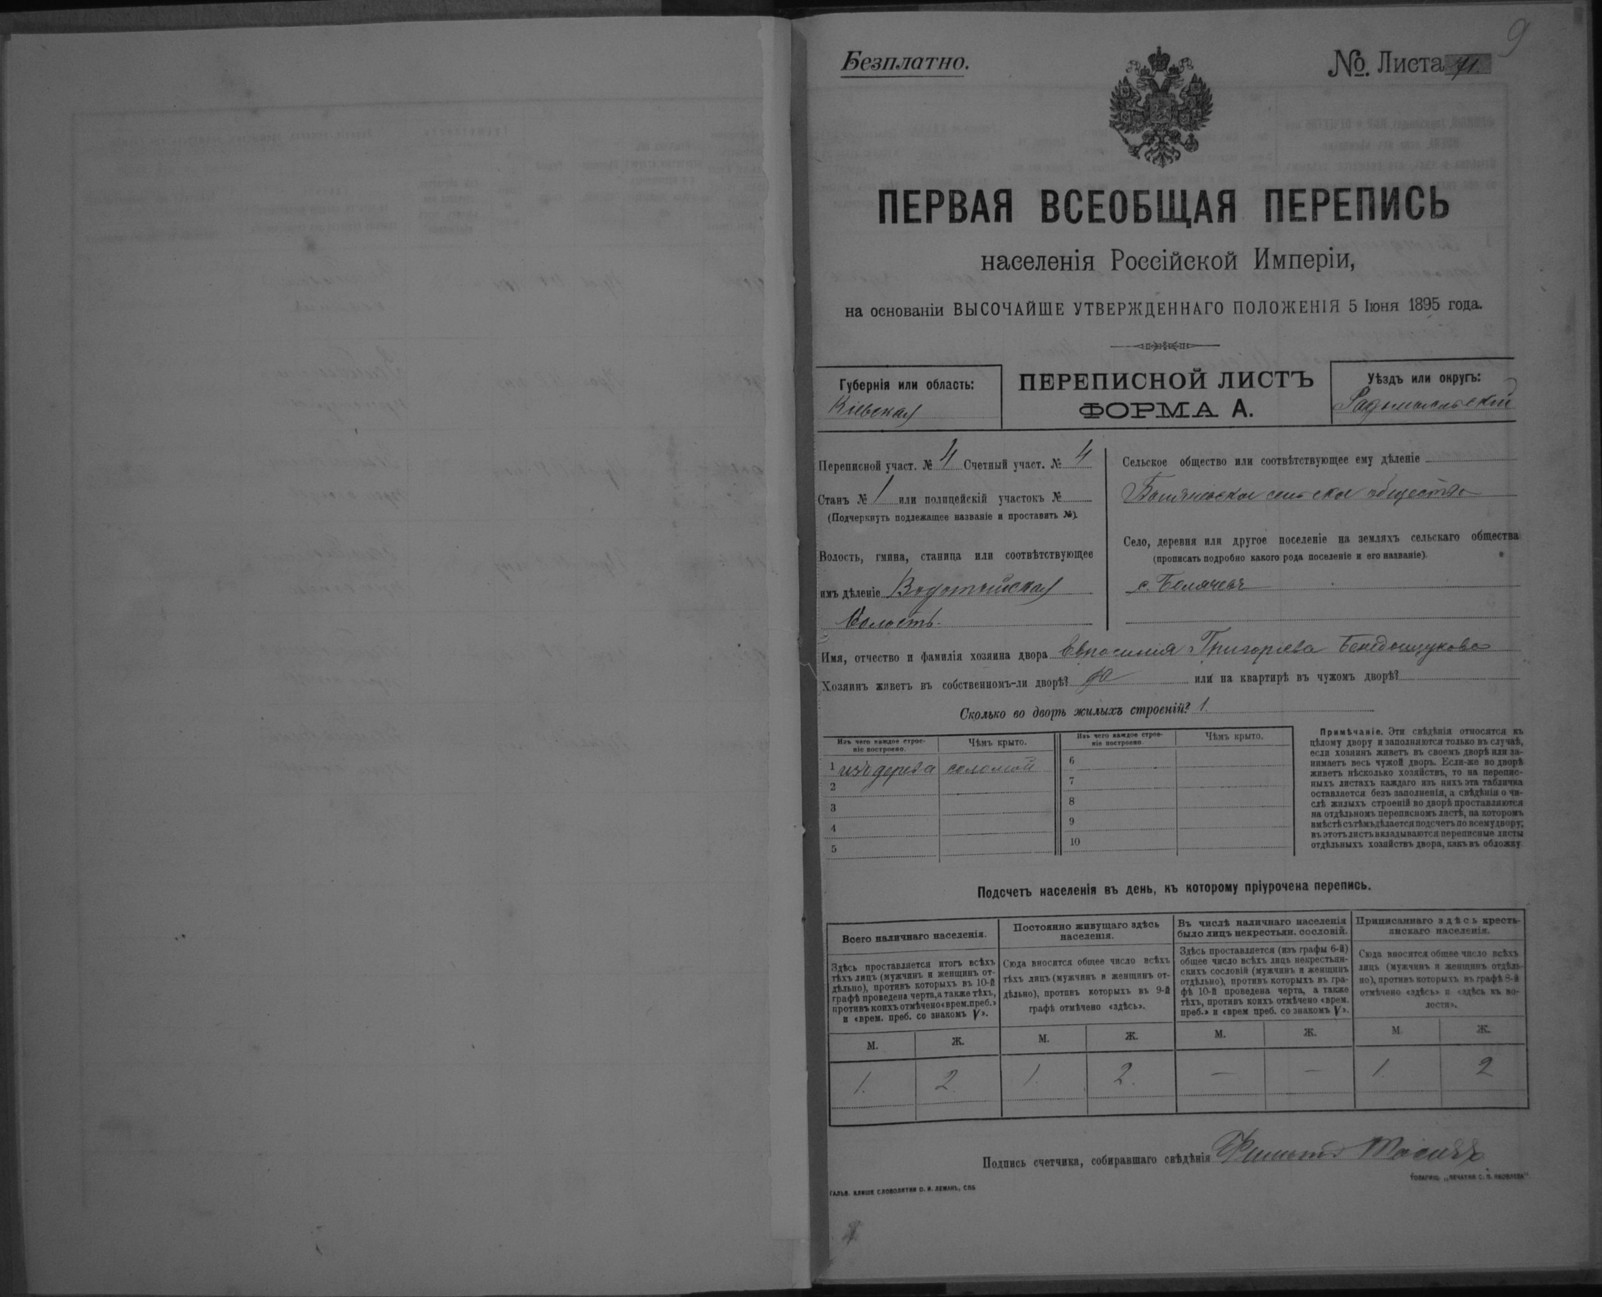 9
Безплатно.
№. Листа 71.
ПЕРВАЯ ВСЕОБЩАЯ ПЕРЕПИСЬ
населенія Россійской Имперіи,
на основаніи ВЫСОЧАЙШЕ УТВЕРЖДЕННАГО ПОЛОЖЕНІЯ 5 Іюня 1895 года.
Губернія или область:
Кіевская
ПЕРЕПИСНОЙ ЛИСТЪ
ФОРМА А.
Уѣздъ или округъ:
Радомысльскій
Переписной участ. № 4 Счетный участ. № 4
Станъ № 1 или полицейскій участокъ №
(Подчеркнуть подлежащее названіе и проставить №).
Волость, гмина, станица или соотвѣтствующее
имъ дѣленіе Водотыйская
Волость.
Сельское общество или соотвѣтствующее ему дѣленіе
сельское общество
Село, деревня или другое поселеніе на земляхъ сельскаго общества
(прописать подробно какого рода поселеніе и его названіе).
с.
Имя, отчество и фамилія хозяина двора Григоріева
Хозяинъ живетъ въ собственномъ-ли дворѣ? да или на квартирѣ въ чужомъ дворѣ?
Сколько во дворѣ жилыхъ строеній? 1.
Изъ чего каждое строе-
ніе построено.
Чѣмъ крыто.
Изъ чего каждое строе-
ніе построено.
Чѣмъ крыто.
1 изъ дерева соломой
2
3
4
5
6
7
8
9
10
Примѣчаніе. Эти свѣдѣнія относятся къ
цѣлому двору и заполняются только въ случаѣ,
если хозяинъ живетъ въ своемъ дворѣ или за-
нимаетъ весь чужой дворъ. Если-же во дворѣ
живетъ нѣсколько хозяйствъ, то на перепис-
ныхъ листахъ каждаго изъ нихъ эта табличка
оставляется безъ заполненія, а свѣдѣнія о чи-
слѣ жилыхъ строеній во дворѣ проставляются
на отдѣльномъ переписномъ листѣ, на которомъ
вмѣстѣ съ тѣмъ дѣлается подсчетъ по всему двору;
въ этотъ листъ вкладываются переписные листы
отдѣльныхъ хозяйствъ двора, какъ въ обложку.
Подсчетъ населенія въ день, къ которому пріурочена перепись.
Всего наличнаго населенія.
Здѣсь проставляется итогъ всѣхъ
тѣхъ лицъ (мужчинъ и женщинъ от-
дѣльно), противъ которыхъ въ 10-й
графѣ проведена черта, а также тѣхъ,
противъ коихъ отмѣчено «врем. преб.»
и «врем. преб. со знакомъ V».
Постоянно живущаго здѣсь
населенія.
Сюда вносится общее число всѣхъ
тѣхъ лицъ (мужчинъ и женщинъ от-
дѣльно), противъ которыхъ въ 9-й
графѣ отмѣчено «здѣсь».
Въ числѣ наличнаго населенія
было лицъ некрестьян. сословій.
Здѣсь проставляется (изъ графы 6-й)
общее число всѣхъ лицъ некрестьян-
скихъ сословій (мужчинъ и женщинъ
отдѣльно), противъ которыхъ въ гра-
фѣ 10-й проведена черта, а также
тѣхъ, противъ коихъ отмѣчено «врем.
преб.» и «врем преб. со знакомъ V».
Приписаннаго здѣсь кресть-
янскаго населенія.
Сюда вносится общее число всѣхъ
лицъ (мужчинъ и женщинъ отдѣль-
но), противъ которыхъ въ графѣ 8-й
отмѣчено «здѣсь» и «здѣсь въ во-
лости».
М. Ж. М. Ж. М. Ж. М. Ж.
1. 2. 1. 2. — — 1. 2
Подпись счетчика, собиравшаго свѣдѣнія
ГАЛЬВ. КЛИШЕ СЛОВОЛИТНИ О. И. ЛЕМАНЪ, СПБ.